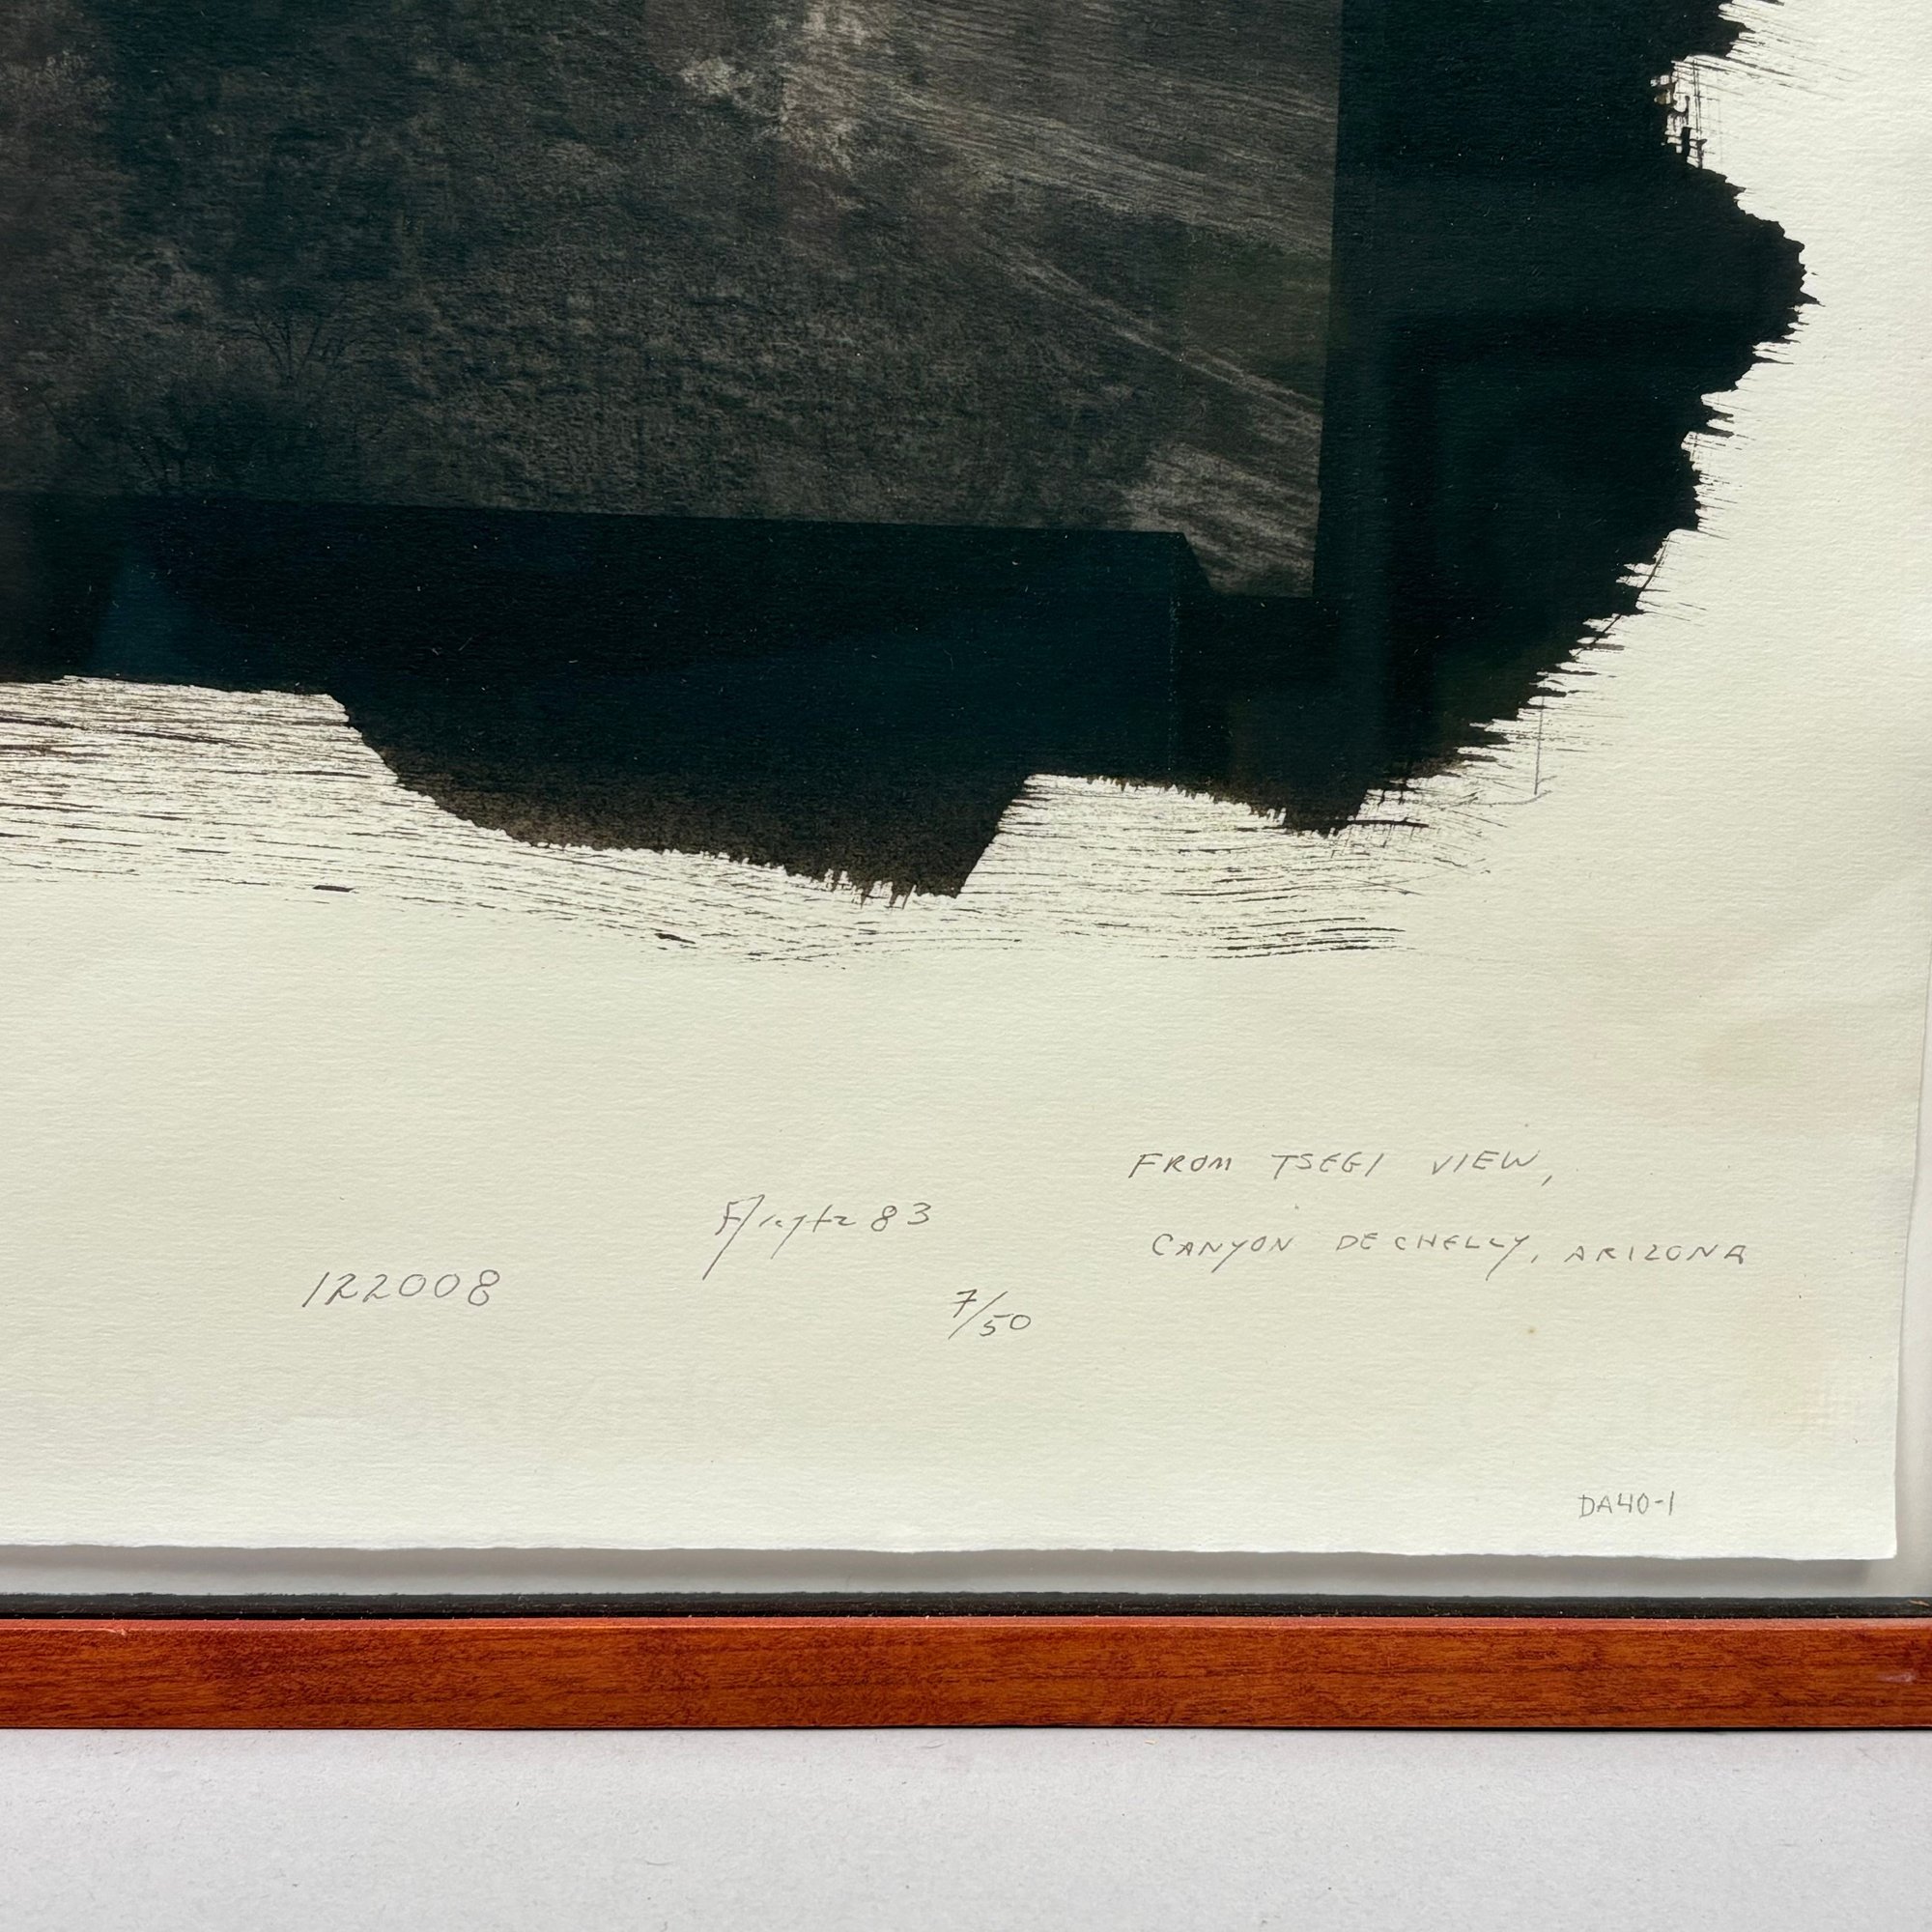 FROM TSEGI VIEW,
CANYON DE CHELLY, ARIZONA
83
122008
7/50
DA40-1